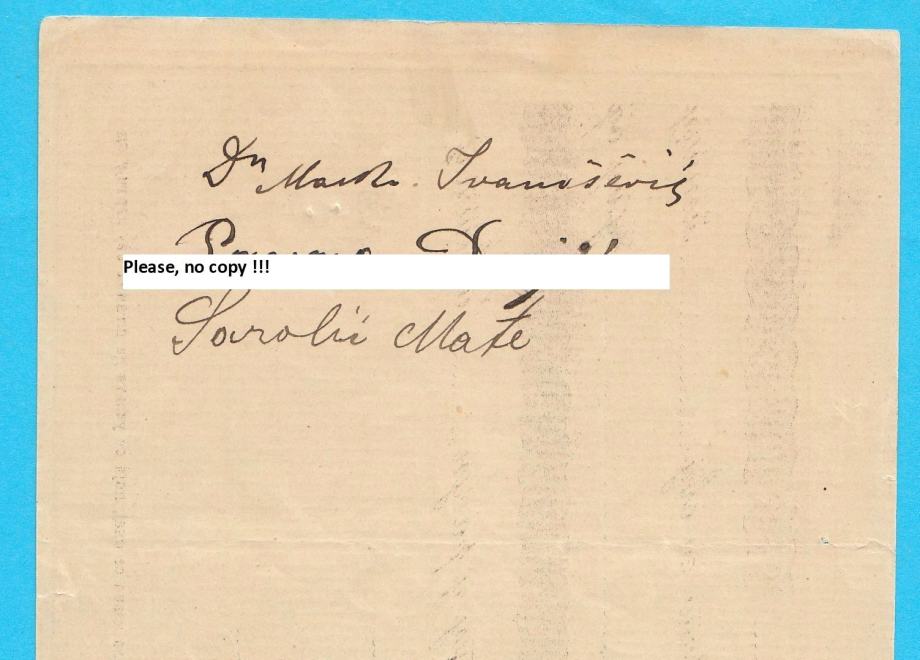 Dr Marko. Ivanišević
Please, no copy !!!
Sarolić Mate